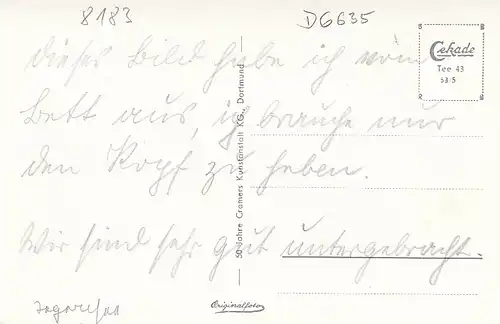 8183
D6635
Cekade
Tee 43
53/5
dieses Bild habe ich vom
Bett aus, ich brauche nur
den Kopf zu heben.
Wir sind sehr gut untergebracht.
50 Jahre Cramers Kunstanstalt KG., Dortmund
Originalfoto